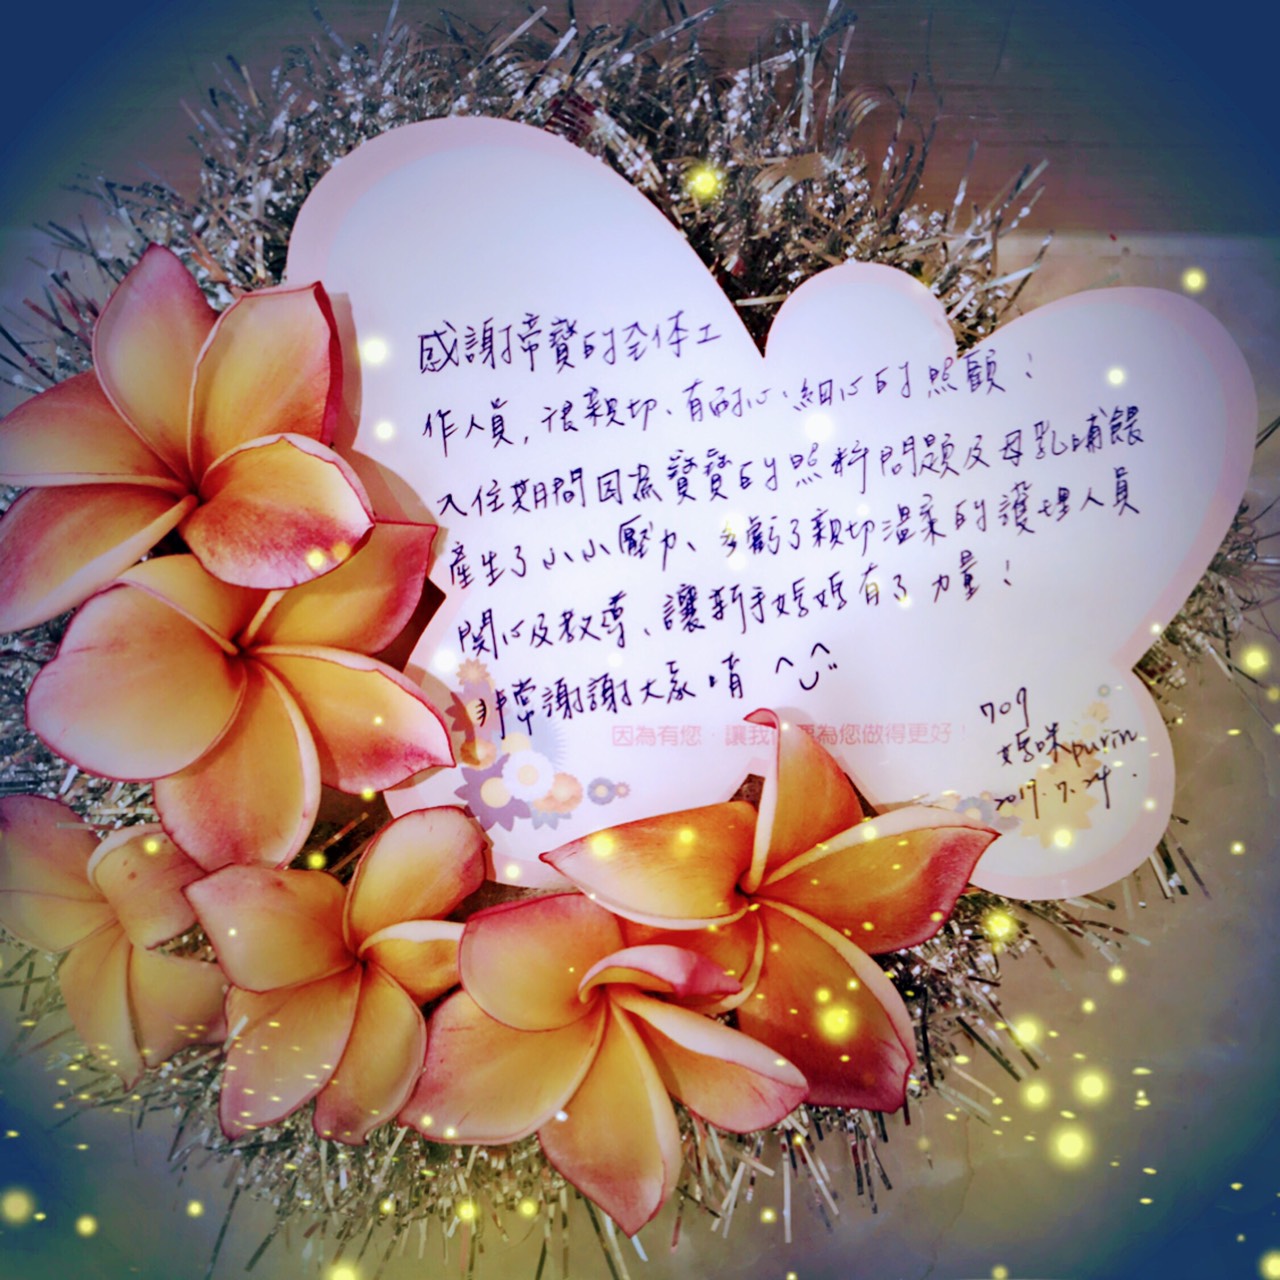 感謝帝寶的全体工
作人員,很親切、有耐心、細心的照顧!
入住期間因為寶寶的照料問題及母乳哺餵
產生了小小壓力、多虧了親切溫柔的護理人員
関心及教導、讓新手媽媽有了力量!
非常謝謝大家唷 ^_^"
因為有您‧讓我 要為您做得更好!
709
媽咪purin
2017.7.24.